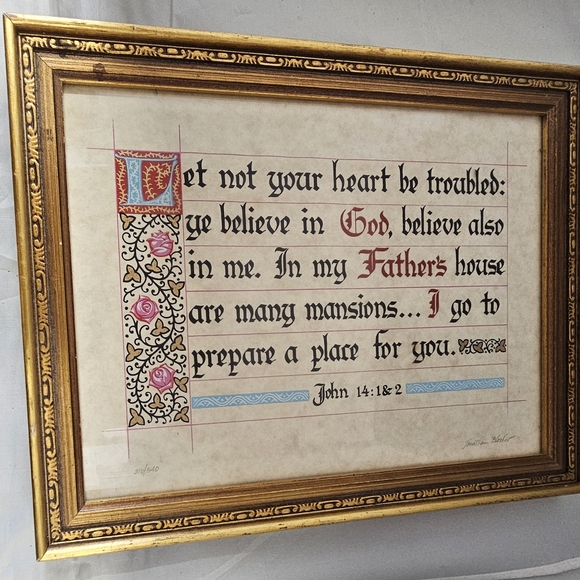 Let not your heart be troubled:
ye believe in God, believe also
in me. In my Father's house
are many mansions... I go to
prepare a place for you.
John 14:1&2